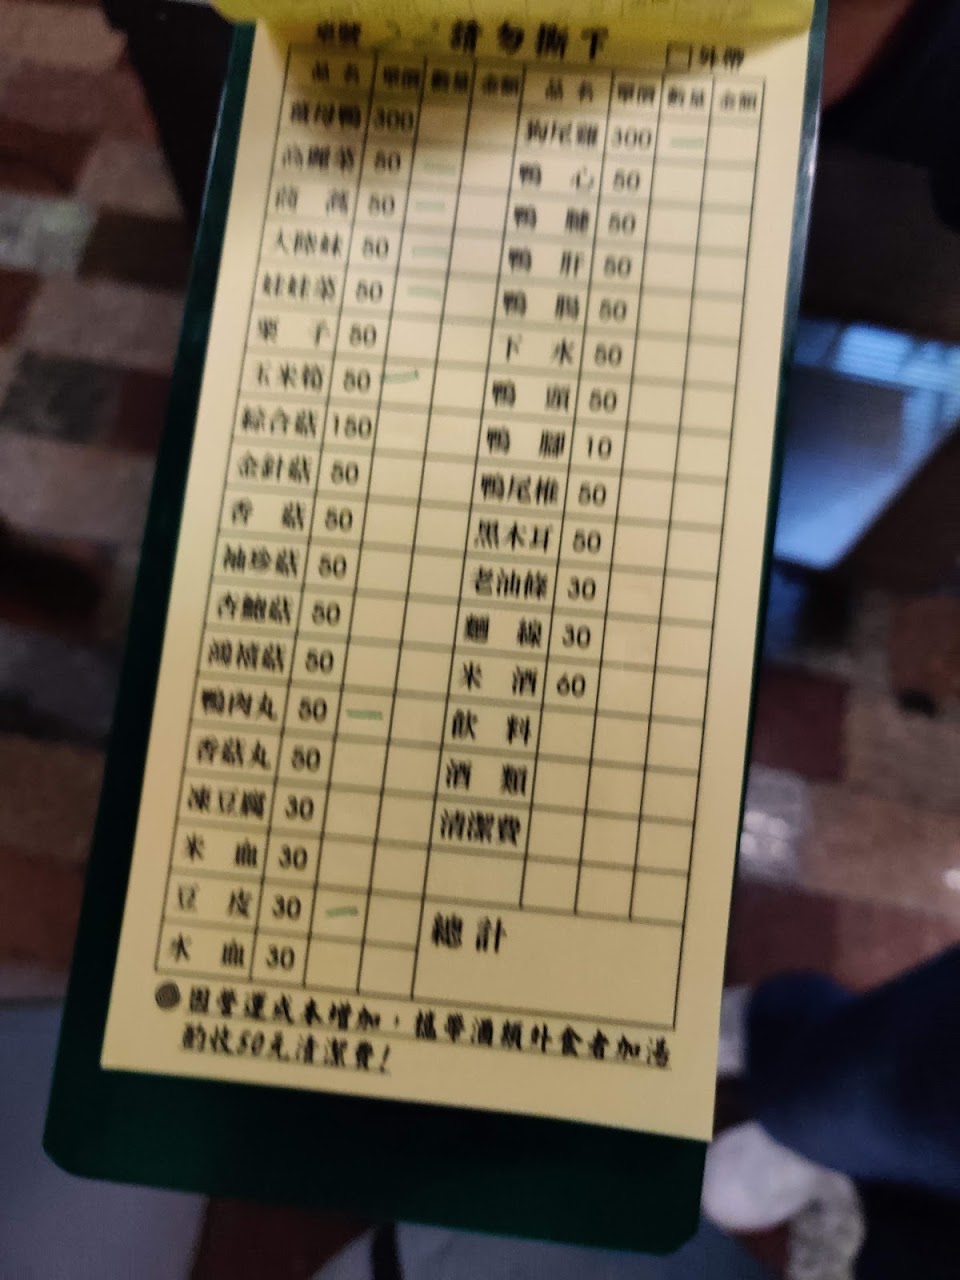 單號 請勿撕下 □外帶
品名 單價 數量 金額 品名 單價 數量 金額
薑母鴨 300 狗尾雞 300 一
高麗菜 50 一 鴨心 50
茼蒿 50 一 鴨腱 50
大陸妹 50 一 鴨肝 50
娃娃菜 50 一 鴨腸 50
栗子 50 下水 50
玉米筍 50 一 鴨頭 50
綜合菇 150 鴨腳 10
金針菇 50 鴨尾椎 50
香菇 50 黑木耳 50
袖珍菇 50 老油條 30
杏鮑菇 50 麵線 30
鴻禧菇 50 米酒 60
鴨肉丸 50 一 飲料
香菇丸 50 酒類
凍豆腐 30 清潔費
米血 30
豆皮 30 一 總計
水血 30
因營運成本增加,攜帶酒類外食者加湯
酌收50元清潔費!